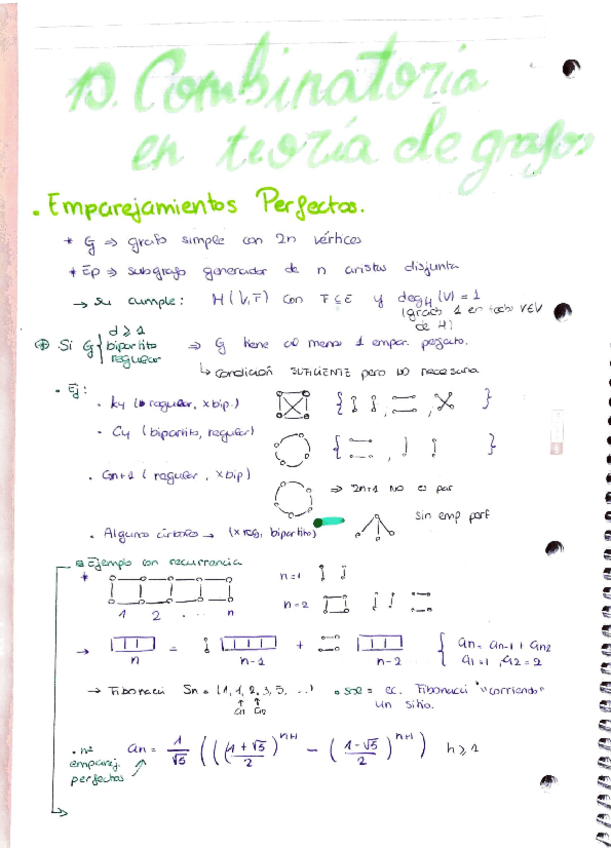 10. Combinatoria
en teoría de grafos
. Emparejamientos Perfectos.
* G => grafo simple con 2n vértices
* Ep => subgrafo generador de n aristas disjunta
→ Su cumple: H(V,F) con F ⊆ E y deg_H (V) = 1
(grado 1 en todo V∈V
de H)
Si G { d ≥ 1
bipartito
regular
=> G tiene al menos 1 empar. perfecto.
↳ condición SUFICIENTE pero NO necesaria
• Ej:
• K4 (regular, x bip.) { , , }
• C4 (bipartito, regular) { , }
• C2n+1 (regular, x bip) => 2n+1 NO es par
• Algunos árboles → (x reg, bipartito) sin emp perf
Ejemplo con recurrencia
* n=1
n=2
1 2 ... n
→ = + { an = an-1 + an-2
n n-1 n-2 a1=1, a2=2
→ Fibonacci Sn = (1, 1, 2, 3, 5, ...) • sol = ec. Fibonacci "corriendo"
a1 a2 un sitio.
• nº
emparej.
perfectos
an = 1/√5 (((1+√5)/2)^{n+1} - ((1-√5)/2)^{n+1}) n ≥ 1